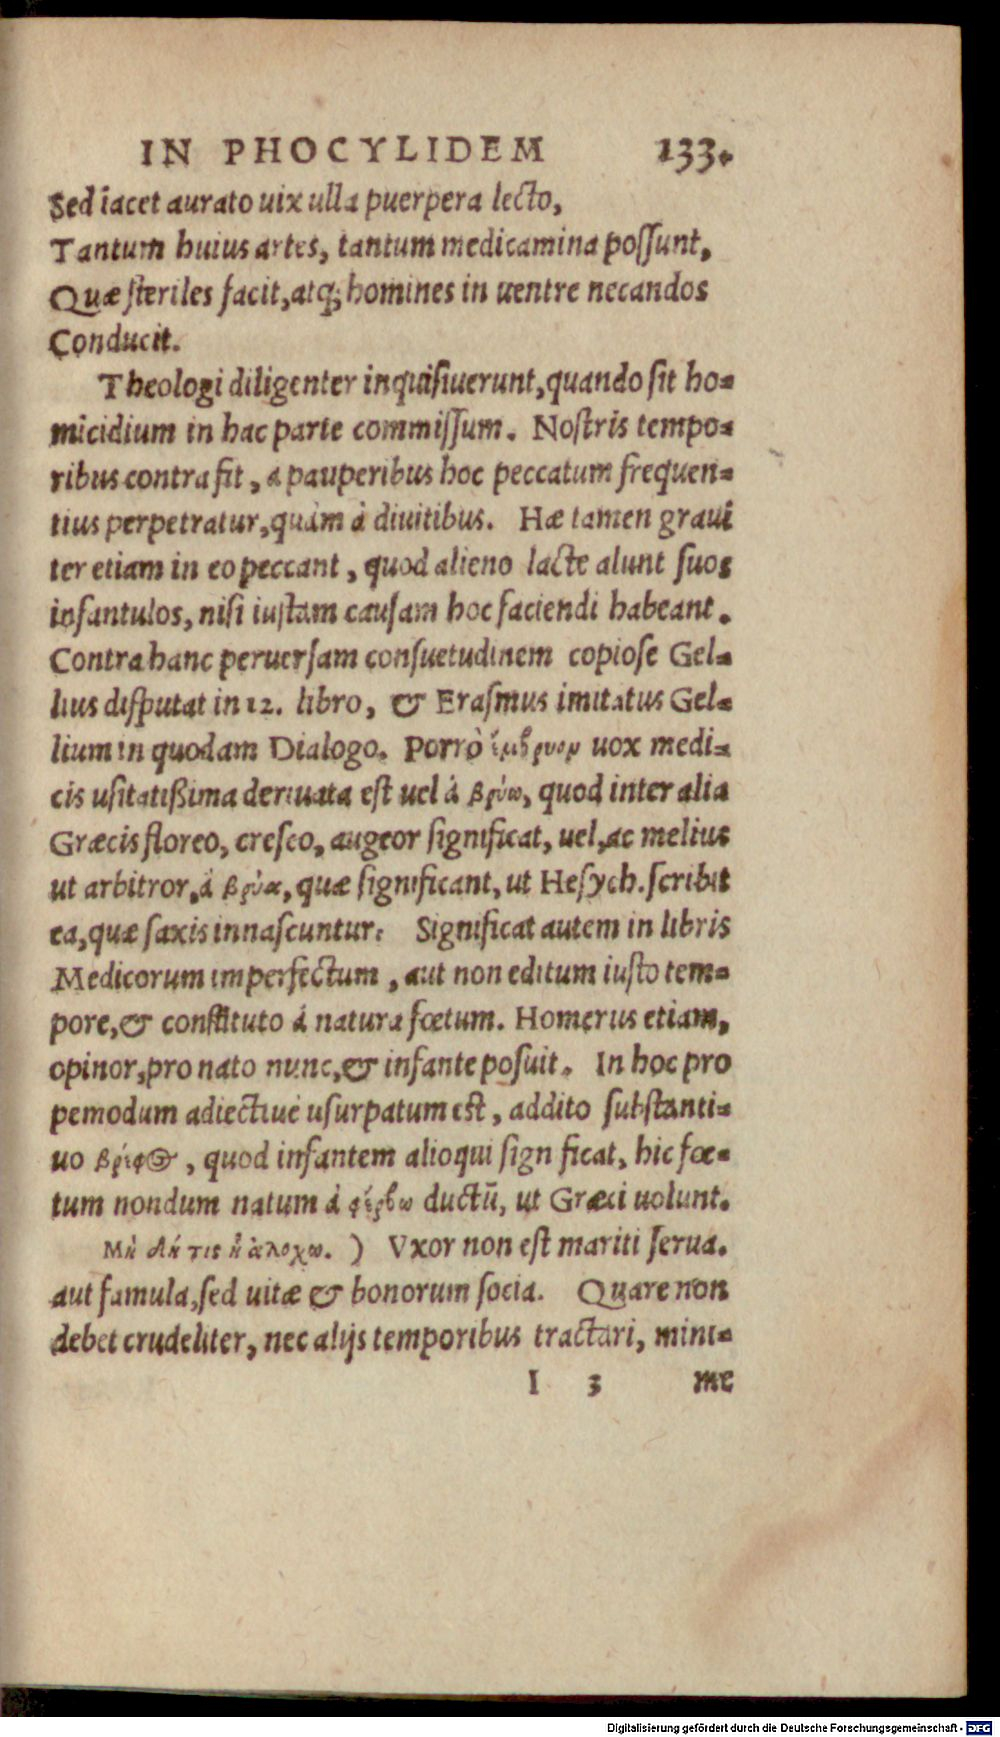 IN PHOCYLIDEM 133.
Sed iacet aurato uix ulla puerpera lecto,
Tantum huius artes, tantum medicamina poſſunt,
Quæ ſteriles facit, atq; homines in uentre necandos
Conducit.
Theologi diligenter inquiſiuerunt, quando ſit ho-
micidium in hac parte commiſſum. Noſtris tempo-
ribus contra fit, à pauperibus hoc peccatum frequen-
tius perpetratur, quàm à diuitibus. Hæ tamen graui
ter etiam in eo peccant, quod alieno lacte alunt ſuos
infantulos, niſi iuſtam cauſam hoc faciendi habeant.
Contra hanc peruerſam conſuetudinem copioſe Gel-
lius diſputat in 12. libro, & Eraſmus imitatus Gel-
lium in quodam Dialogo. Porrò ἔμβρυον uox medi-
cis uſitatißima deriuata eſt uel à βρύω, quod inter alia
Græcis floreo, creſco, augeor ſignificat, uel, ac melius
ut arbitror, à βρύα, quæ ſignificant, ut Heſych. ſcribit
ea, quæ ſaxis innaſcuntur. Significat autem in libris
Medicorum imperfectum, aut non editum iuſto tem-
pore, & conſtituto à natura fœtum. Homerus etiam,
opinor, pro nato nunc, & infante poſuit. In hoc pro
pemodum adiectiuè uſurpatum eſt, addito ſubſtanti-
uo βρέφος, quod infantem alioqui ſignificat, hic fœ-
tum nondum natum à φέρβω ductū, ut Græci uolunt.
Μὴ δή τις ἣ ἀλόχω. ) Vxor non eſt mariti ſerua.
aut famula, ſed uitæ & bonorum ſocia. Quare non
debet crudeliter, nec alijs temporibus tractari, mini-
I 3 me
Digitalisierung gefördert durch die Deutsche Forschungsgemeinschaft - DFG